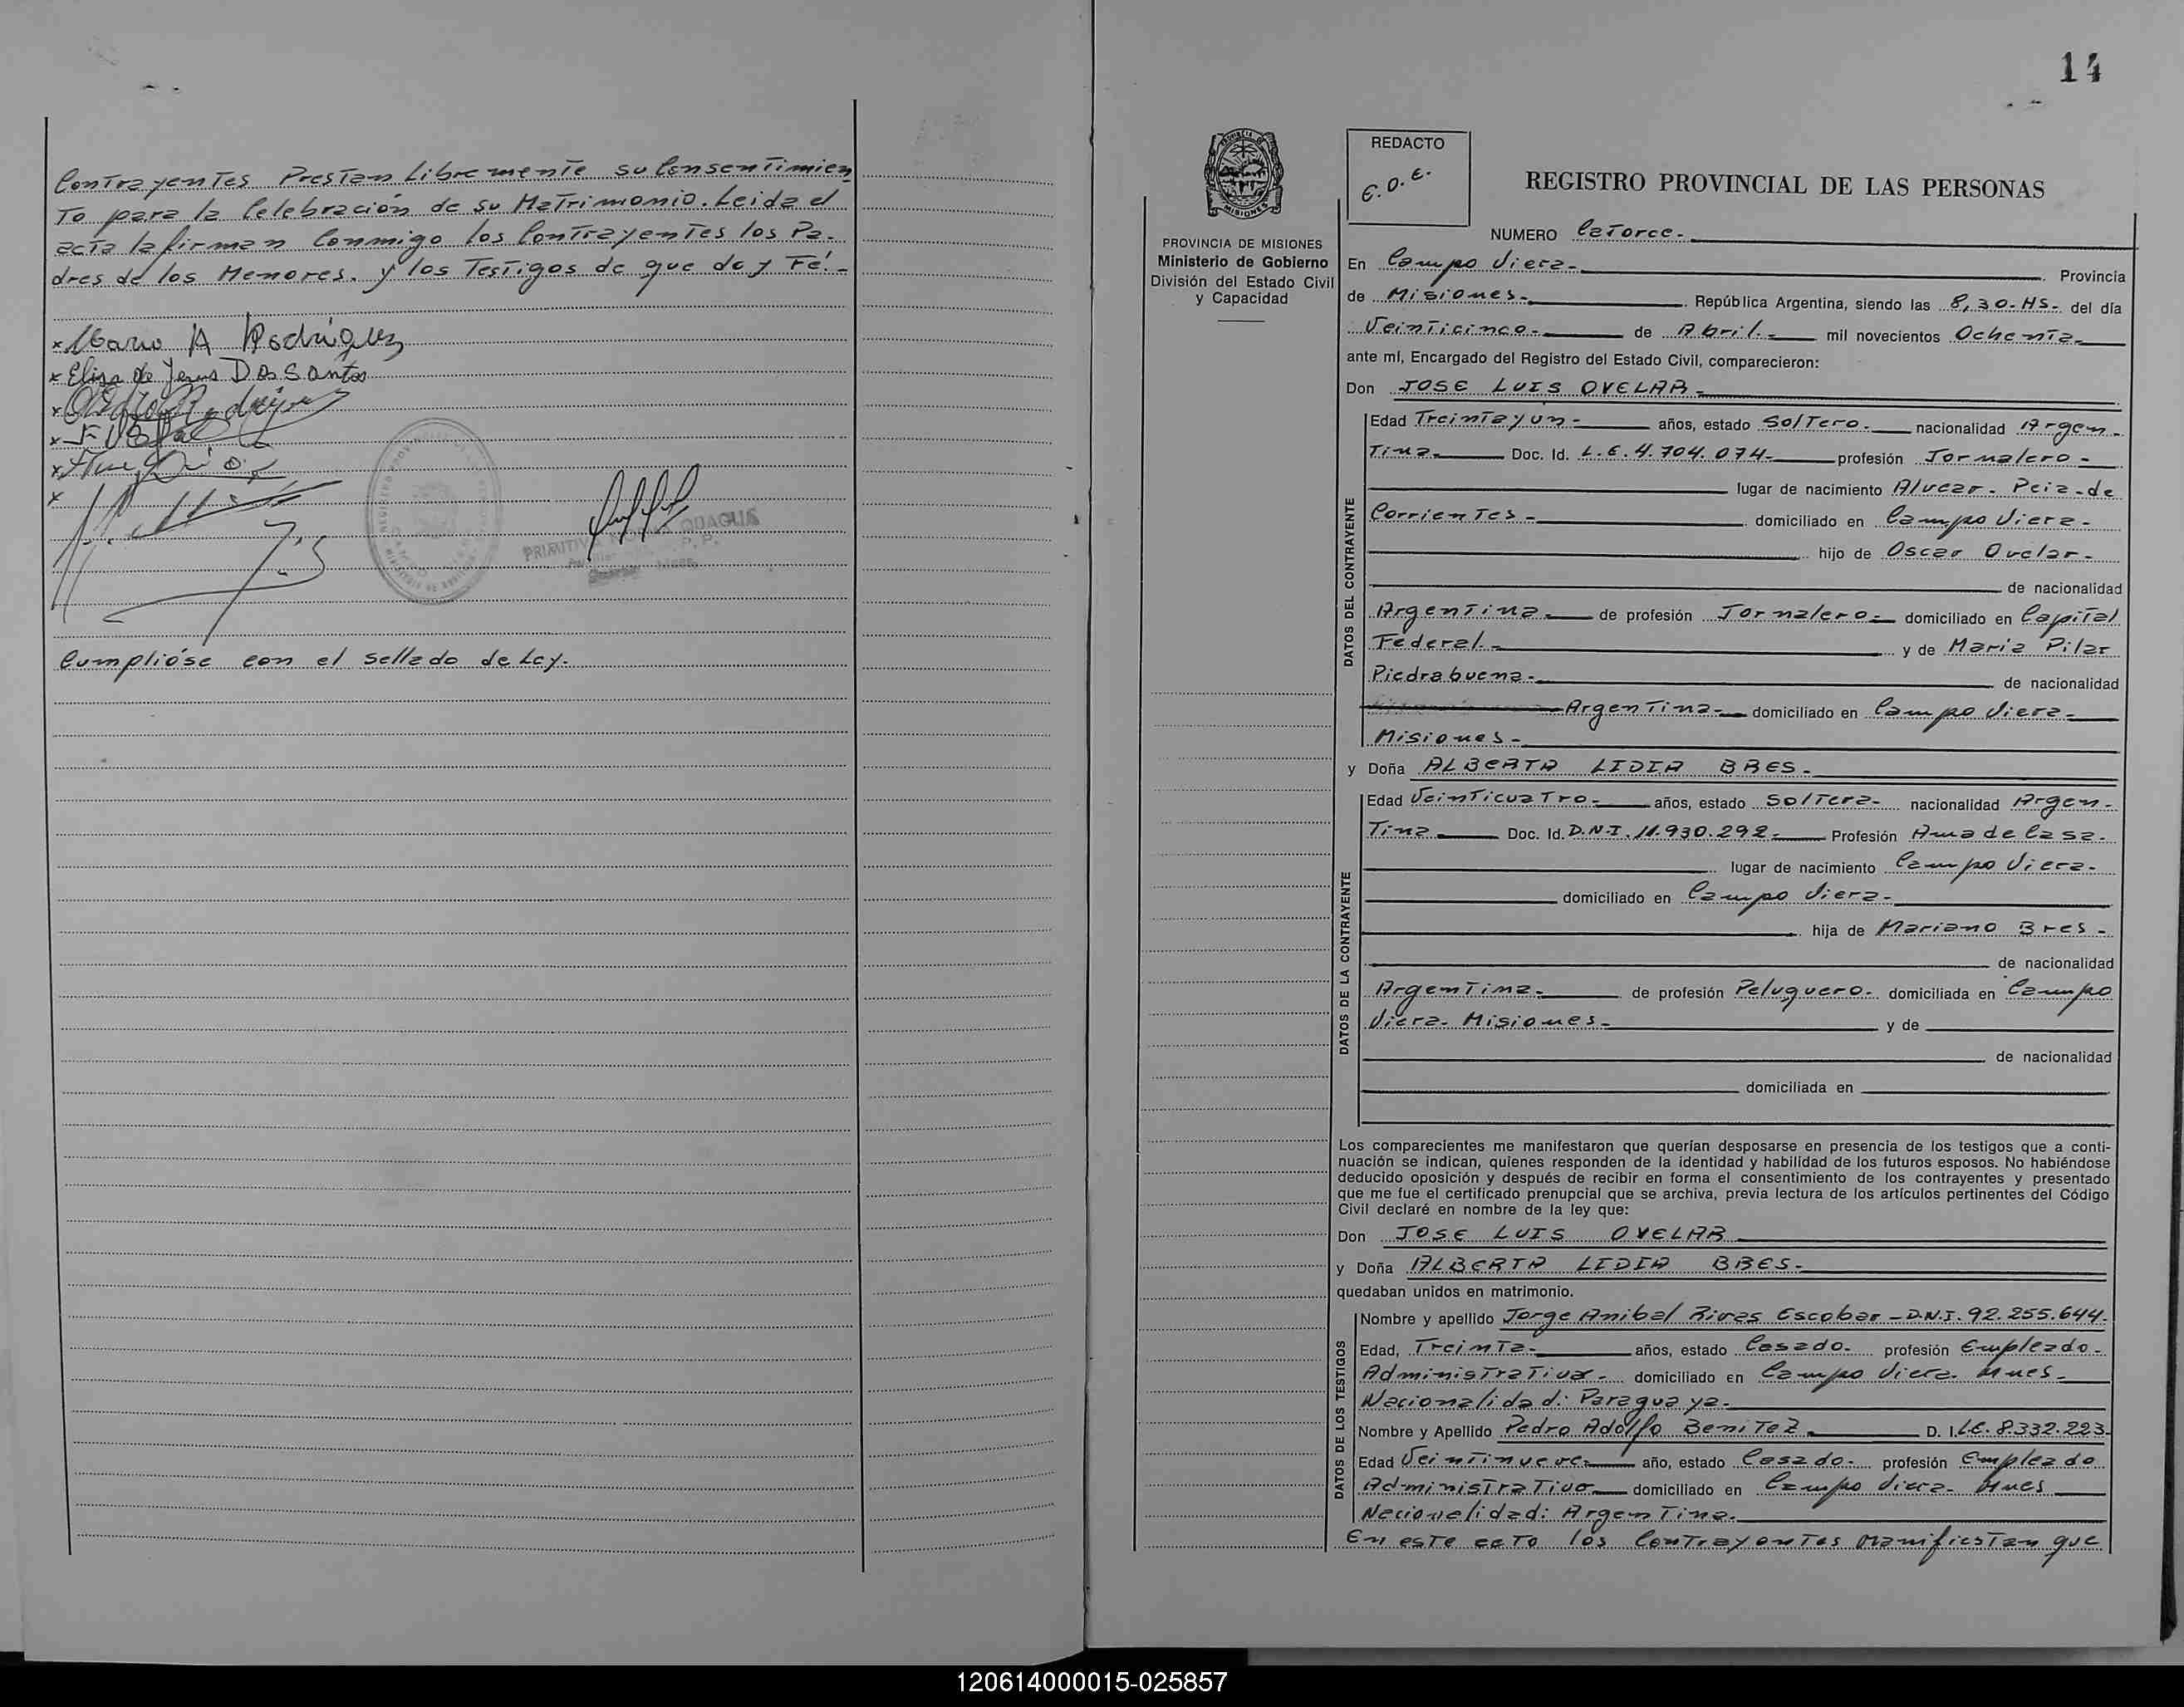 Contrayentes Prestan Libremente su Consentimien
To para la Celebración de su Matrimonio. Leida el
acta la firman Conmigo los Contrayentes los Pa-
dres de los Menores. y los Testigos de que doy Fé.-
x Mario A Rodríguez
x Elisa de Jesus Dos Santos
x
x
x
x
PRIMITIV QUAGLIA
Cumplióse con el sellado de Ley.-
14
REDACTO
E.O.E.
REGISTRO PROVINCIAL DE LAS PERSONAS
NUMERO Catorce.-
PROVINCIA DE MISIONES
Ministerio de Gobierno
División del Estado Civil
y Capacidad
En Campo Viera.- Provincia
de Misiones.- República Argentina, siendo las 8,30-HS- del día
Veinticinco.- de Abril.- mil novecientos Ochenta.-
ante mí, Encargado del Registro del Estado Civil, comparecieron:
Don JOSE LUIS OVELAR.-
DATOS DEL CONTRAYENTE
Edad Treinta y un- años, estado Soltero.- nacionalidad Argen-
Tina- Doc. Id. L.E. 4.704.074- profesión Jornalero-
lugar de nacimiento Alvear- Pcia-de
Corrientes- domiciliado en Campo Viera-
hijo de Oscar Ovelar-
de nacionalidad
Argentina- de profesión Jornalero- domiciliado en Capital
Federal- y de María Pilar
Piedrabuena- de nacionalidad
Argentina- domiciliado en Campo Viera-
Misiones-
y Doña ALBERTA LIDIA BRES.-
DATOS DE LA CONTRAYENTE
Edad Veinticuatro- años, estado Soltera- nacionalidad Argen-
Tina Doc. Id. D.N.I. 11.930.292- Profesión Ama de Casa-
lugar de nacimiento Campo Viera-
domiciliado en Campo Viera-
hija de Mariano Bres-
de nacionalidad
Argentina- de profesión Peluquero- domiciliada en Campo
Viera- Misiones- y de
de nacionalidad
domiciliada en
Los comparecientes me manifestaron que querían desposarse en presencia de los testigos que a conti-
nuación se indican, quienes responden de la identidad y habilidad de los futuros esposos. No habiéndose
deducido oposición y después de recibir en forma el consentimiento de los contrayentes y presentado
que me fue el certificado prenupcial que se archiva, previa lectura de los artículos pertinentes del Código
Civil declaré en nombre de la ley que:
Don JOSE LUIS OVELAR
y Doña ALBERTA LIDIA BRES.-
quedaban unidos en matrimonio.
DATOS DE LOS TESTIGOS
Nombre y apellido Jorge Anibal Rivas Escobar - D.N.I. 92.255.644-
Edad, Treinta- años, estado Casado- profesión Empleado-
Administrativo- domiciliado en Campo Viera- Mnes-
Nacionalidad: Paraguaya-
Nombre y Apellido Pedro Adolfo Benitez D. I. L.E. 8.332.223-
Edad Veintinueve- año, estado Casado- profesión Empleado
Administrativo- domiciliado en Campo Viera- Mnes
Nacionalidad: Argentina-
En este acto los Contrayentes Manifiestan que
120614000015-025857